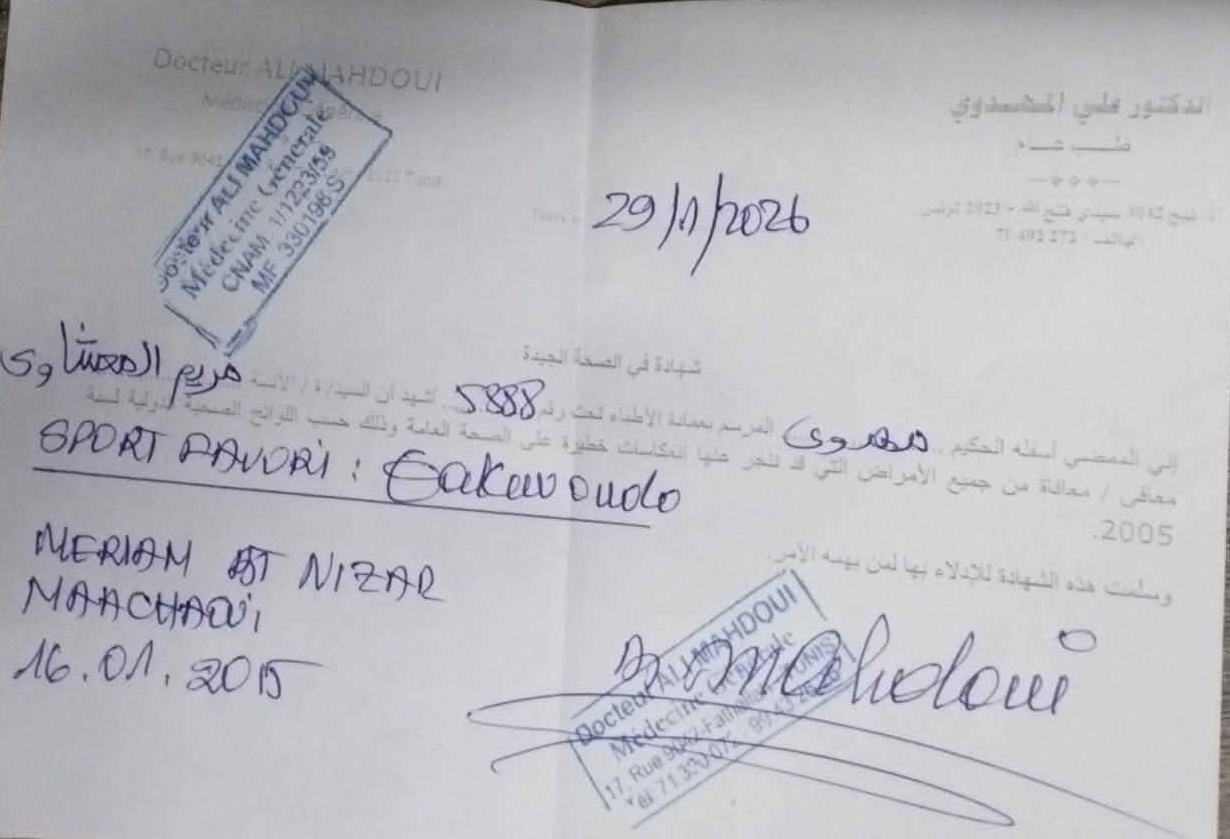 Docteur ALI MAHDOUI
الدكتور علي المهدوي
طب عام
17, Rue 9042
نهج 9042 سيدي فتح الله - 2023 تونس
الهاتف : 71 492 272
Docteur ALI MAHDOUI
Médecine Générale
CNAM 1/1223/59
MF 330196.S
29/1/2026
شهادة في الصحة الجيدة
إني الممضي أسفله الحكيم .. مهدوي المرسم بعمادة الأطباء تحت رقم 5888 أشهد أن السيد/ة / الآنسة مريم المعشاوي
معافى / معافاة من جميع الأمراض التي قد تنجر عنها انعكاسات خطيرة على الصحة العامة وذلك حسب اللوائح الصحية الدولية لسنة
2005.
SPORT FAVORI : Taekwondo
وسلمت هذه الشهادة للإدلاء بها لمن يهمه الأمر.
MERIAM BT NIZAR
MAACHAOUI
16.01.2015
Dr Mahdoui
Docteur ALI MAHDOUI
Médecine Générale
17, Rue 9042 TUNIS
Tél 71